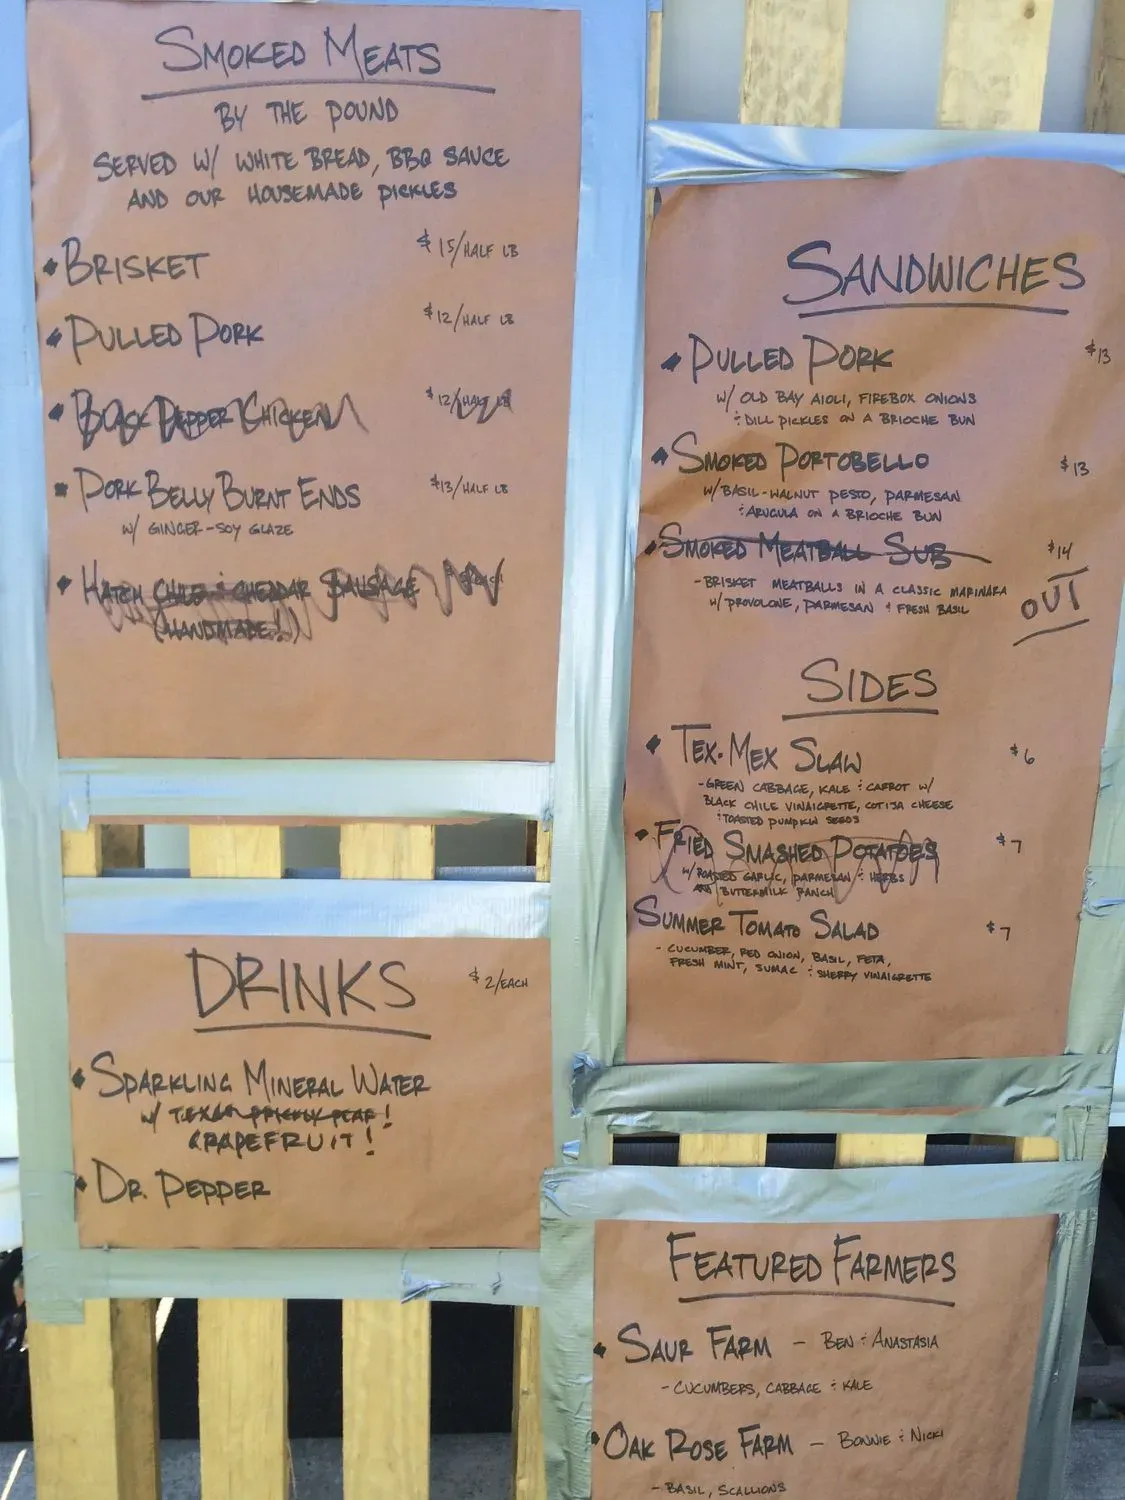 SMOKED MEATS
BY THE POUND
SERVED W/ WHITE BREAD, BBQ SAUCE
AND OUR HOUSEMADE PICKLES
BRISKET $15/HALF LB
PULLED PORK $12/HALF LB
BLACK PEPPER CHICKEN $12/HALF LB
PORK BELLY BURNT ENDS $13/HALF LB
W/ GINGER-SOY GLAZE
HATCH CHILE & CHEDDAR SAUSAGE
(HANDMADE!)
DRINKS $2/EACH
SPARKLING MINERAL WATER
W/ TEXAS PRICKLY PEAR!
GRAPEFRUIT!
DR. PEPPER
SANDWICHES
PULLED PORK $13
W/ OLD BAY AIOLI, FIREBOX ONIONS
& DILL PICKLES ON A BRIOCHE BUN
SMOKED PORTOBELLO $13
W/ BASIL-WALNUT PESTO, PARMESAN
& ARUGULA ON A BRIOCHE BUN
SMOKED MEATBALL SUB $14
- BRISKET MEATBALLS IN A CLASSIC MARINARA
W/ PROVOLONE, PARMESAN & FRESH BASIL
OUT
SIDES
TEX-MEX SLAW $6
- GREEN CABBAGE, KALE & CARROT W/
BLACK CHILE VINAIGRETTE, COTIJA CHEESE
& TOASTED PUMPKIN SEEDS
FRIED SMASHED POTATOES $7
W/ ROASTED GARLIC, PARMESAN & HERBS
AND BUTTERMILK RANCH
SUMMER TOMATO SALAD $7
- CUCUMBER, RED ONION, BASIL, FETA,
FRESH MINT, SUMAC & SHERRY VINAIGRETTE
FEATURED FARMERS
SAUR FARM - BEN & ANASTASIA
- CUCUMBERS, CABBAGE & KALE
OAK ROSE FARM - BONNIE & NICKI
- BASIL, SCALLIONS